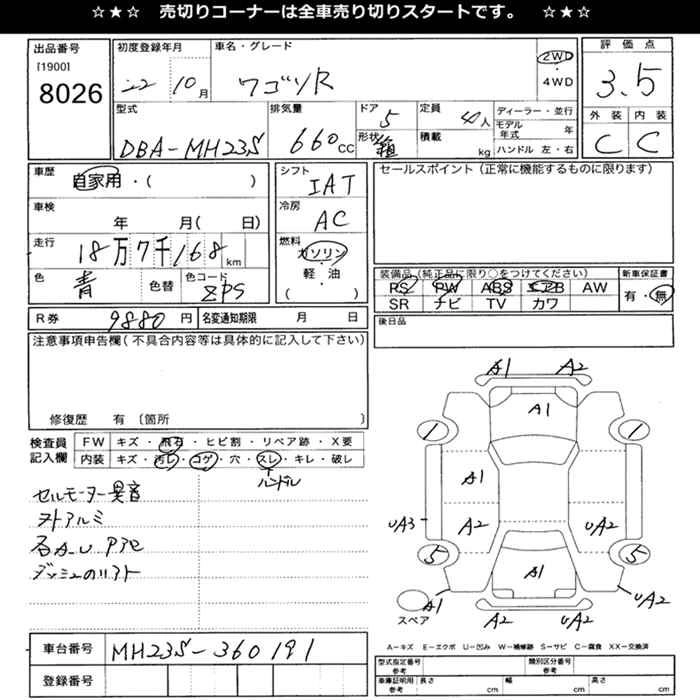 ☆★☆ 売切りコーナーは全車売り切りスタートです。 ☆★☆
出品番号
[1900]
8026
初度登録年月
22 10月
車名・グレード
ワゴンR
2WD
・
4WD
評価点
3.5
外装 内装
C C
型式
DBA-MH23S
排気量
660cc
ドア
5
形状
箱
定員
4人
積載
kg
ディーラー・並行
モデル年式 年
ハンドル 左・右
車歴
自家用・( )
車検
年 月( 日)
走行
18万7千168km
色
青
色替
色コード
ZPS
シフト
IAT
冷房
AC
燃料
ガソリン
・
軽・油
( )
セールスポイント(正常に機能するものに限ります)
装備品(純正品に限り○をつけてください)
PS PW ABS エアB AW
SR ナビ TV カワ
新車保証書
有・無
後日品
R券 9880円 名変通知期限 月 日
注意事項申告欄(不具合内容等は具体的に記入して下さい)
修復歴 有〔箇所 〕
検査員記入欄
FW キズ・飛石・ヒビ割・リペア跡・X要
内装 キズ・汚レ・コゲ・穴・スレ・キレ・破レ
ハンドル
セルモーター異音
ダッシュのリフト
A1 A2
A1
1 1
A1
UA3 A2 UA2
5 5
A1
スペア
A1 A2 UA2 UA2
A-キズ E-エクボ U-凹み W-補修跡 S-サビ C-腐食 XX-交換済
車台番号 MH23S-360191
登録番号
型式指定番号 参考
類別区分番号 参考
車庫証明用 参考 長さ cm 幅 cm 高さ cm